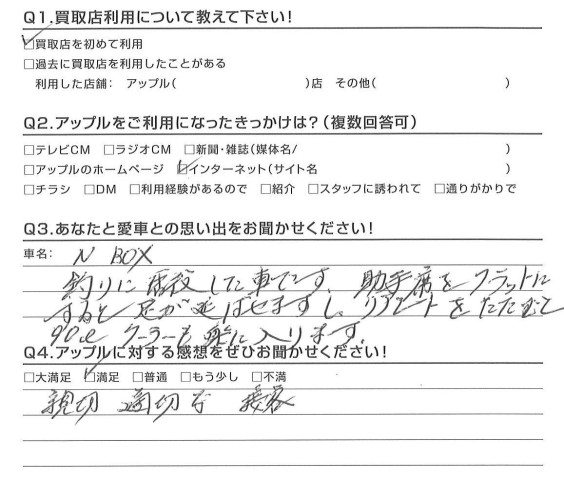 Q1.買取店利用について教えて下さい!
☑買取店を初めて利用
□過去に買取店を利用したことがある
利用した店舗: アップル( )店 その他( )
Q2.アップルをご利用になったきっかけは?(複数回答可)
□テレビCM □ラジオCM □新聞・雑誌(媒体名/ )
□アップルのホームページ ☑インターネット(サイト名 )
□チラシ □DM □利用経験があるので □紹介 □スタッフに誘われて □通りがかりで
Q3.あなたと愛車との思い出をお聞かせください!
車名: N BOX
釣りに活役した車です。助手席をフラットに
すると足が延ばせますし、リアシートをたたむと
90ℓクーラーも楽に入ります。
Q4.アップルに対する感想をぜひお聞かせください!
□大満足 ☑満足 □普通 □もう少し □不満
親切 適切な 接客